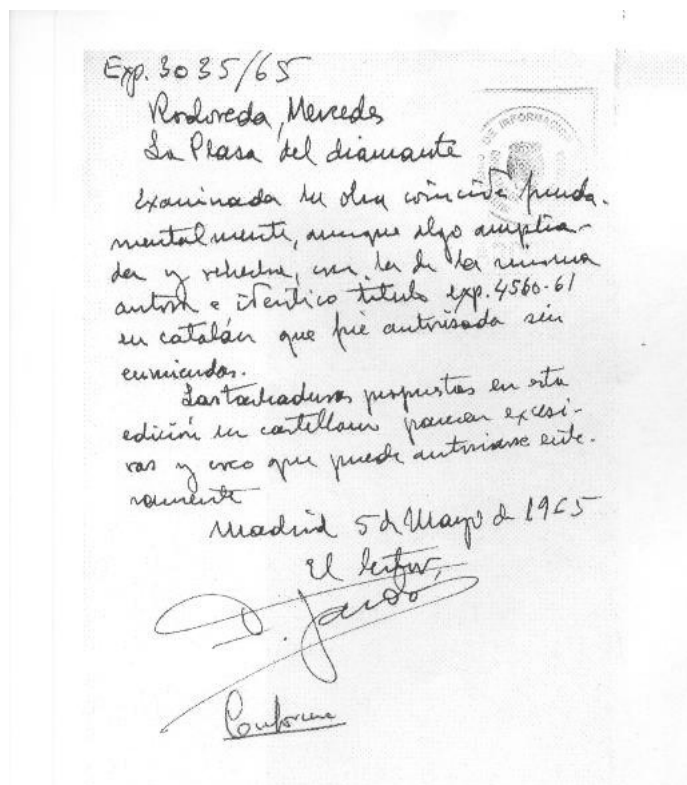 Exp. 3035/65
Rodoreda, Mercedes
La Plasa del diamante
DE INFORMACION
Examinada la obra coincide funda-
mentalmente, aunque algo amplia-
da y rehecha, con la de la misma
autora e identico titulo exp. 4560-61
en catalán que fué autorisada sin
enmiendas.
Las tachaduras propuestas en esta
edición en castellano parecen excesi-
vas y creo que puede autorisarse ente-
ramente
Madrid 5 de Mayo de 1965
El lector,
Conforme